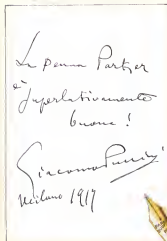 La penna Parker
è superlativamente
buona!
Giacomo Puccini
Milano 1917